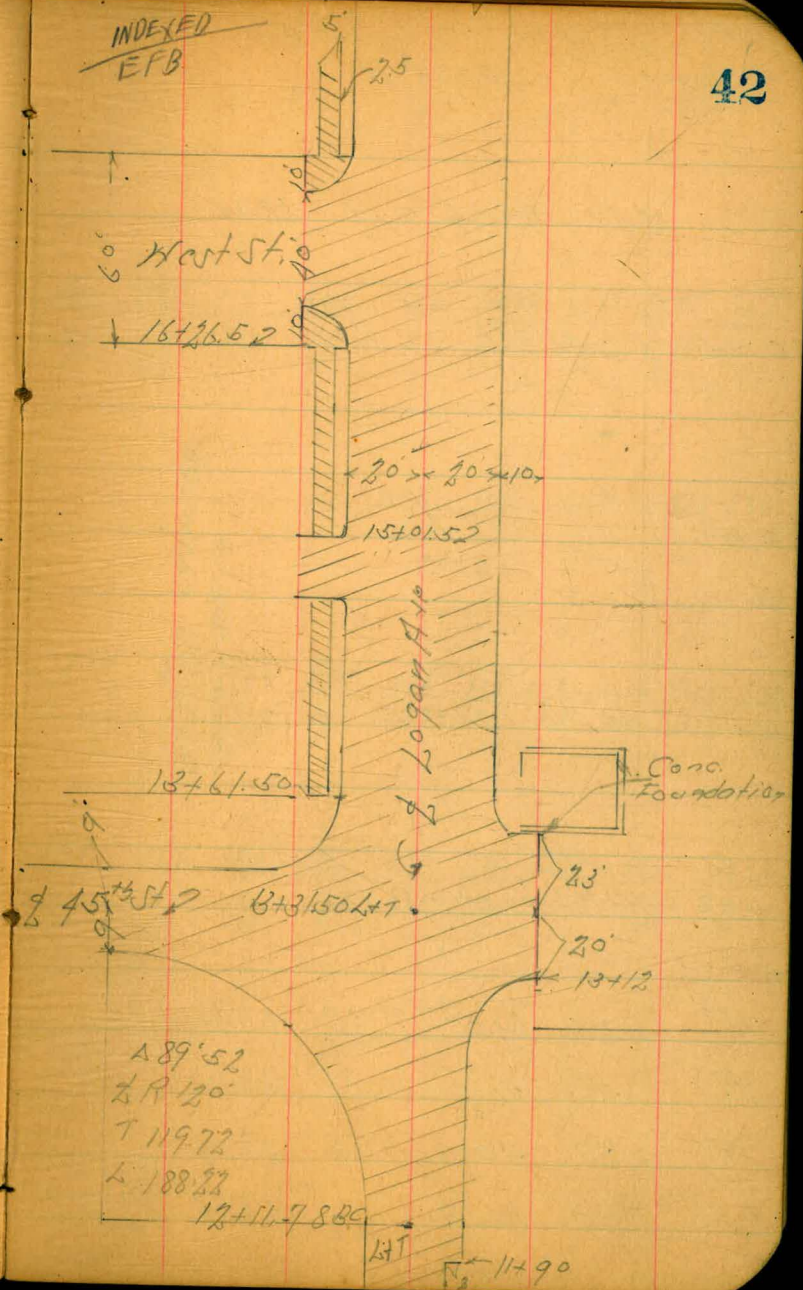 INDEXED
EFB
42
5'
2.5
10'
60'
West St.
40
10'
16+26.52
20' 20' 10'
15+01.52
℄ Logan Ave
13+61.50
Conc.
Foundation
23'
℄ 45th St
13+31.50 L+T
20'
13+12
Δ 89°52
℄ R 120'
T 119.72
L 188.22
12+11.78 BC
L+T
11+90